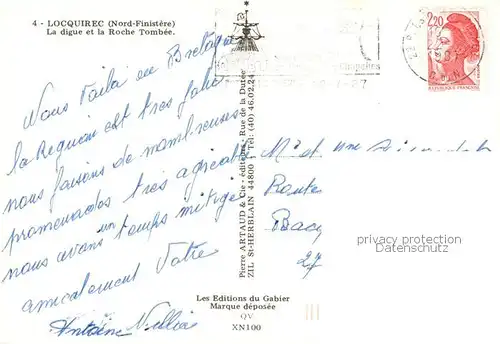 4 - LOCQUIREC (Nord-Finistère)
La digue et la Roche Tombée.
Nous Voila en Bretagne
la Region est tres jolie
nous faisons de nombreuses
promenades très agreable
nous avons un temps mitigé
amicalement Votre
Antoine
Pierre ARTAUD & Cie - éditeurs - Rue de la Dutée
ZIL ST-HERBLAIN 44800 - Tél: (40) 46.02.24
Les Editions du Gabier
Marque déposée
QV
XN100
2,20
REPUBLIQUE FRANÇAISE
Mr et une
Route
Bacq
27
privacy protection
Datenschutz